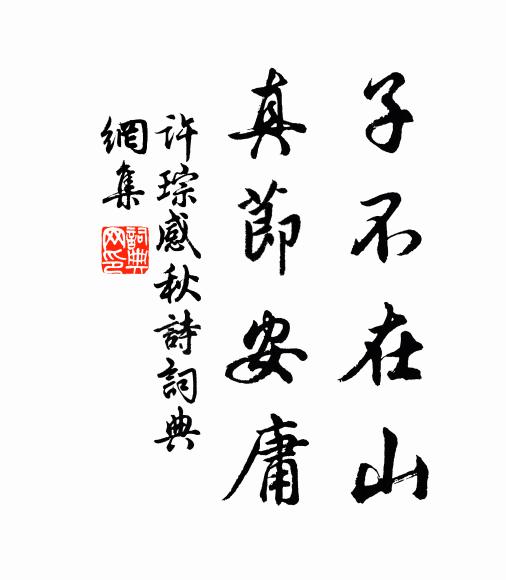 子不在山
真節安庸
许琮感秋詩詞典
網集
詞典网印